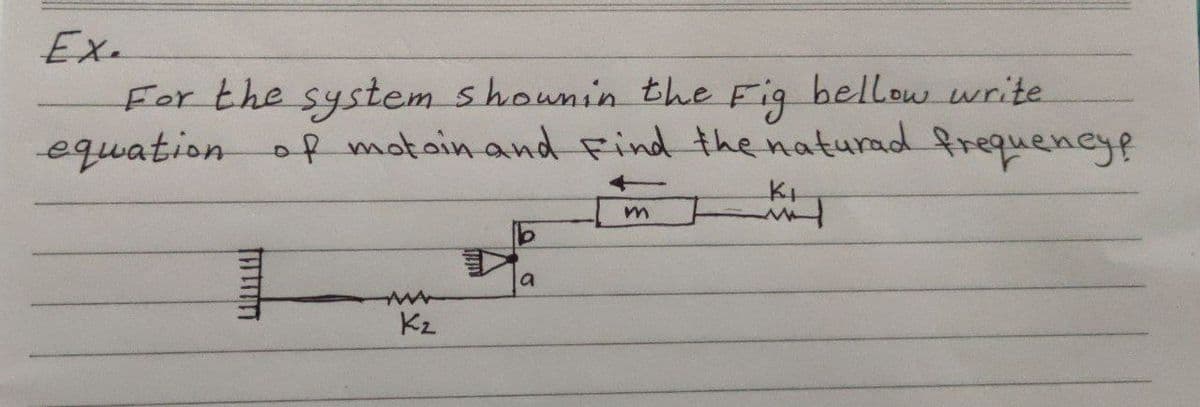 Ex.
For the system shownin the Fig bellow write
equation of motoin and Find the naturad frequency?
K1
m
b
a
K2